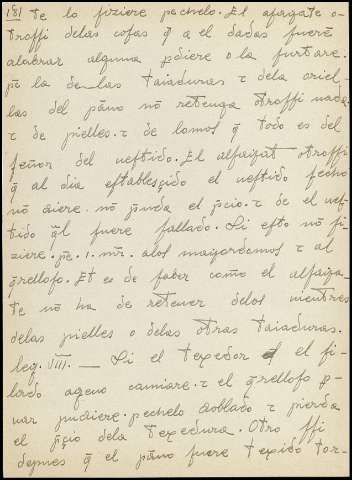 181 te lo fiziere pechelo. El afagate o-
troffi delas cosas q̃ a el dadas fuerẽ
alabrar alguna pdiere o la furtare.
pẽ la de las taiaduras τ dela oriel-
las del pãno nõ retenga otroffi nada
τ de pielles. τ de lomos q̃ todo es del
señor del vestido. El alfaiat otroffi
q̃ al dia establesçido el vestido fecho
nõ diere. nõ prẽda el p̃cio. τ de el ves-
tido q̃l fuere fallado. Si esto nõ fi-
ziere. pẽ. 1. mr̃. alos mayordomos τ al
q̃rellofo. Et es de saber como el alfaya-
te nõ ha de retener delos
delas pielles o delas otras taiaduras.
ley. VIII. — Si el texedor el fi-
lado ageno camiare. τ el q̃rellofo p-
uar pudiere. pechelo doblado τ pierda
el p̃çio dela texedura. Otro ffi
depues q̃ el pãno fuere texido tor-